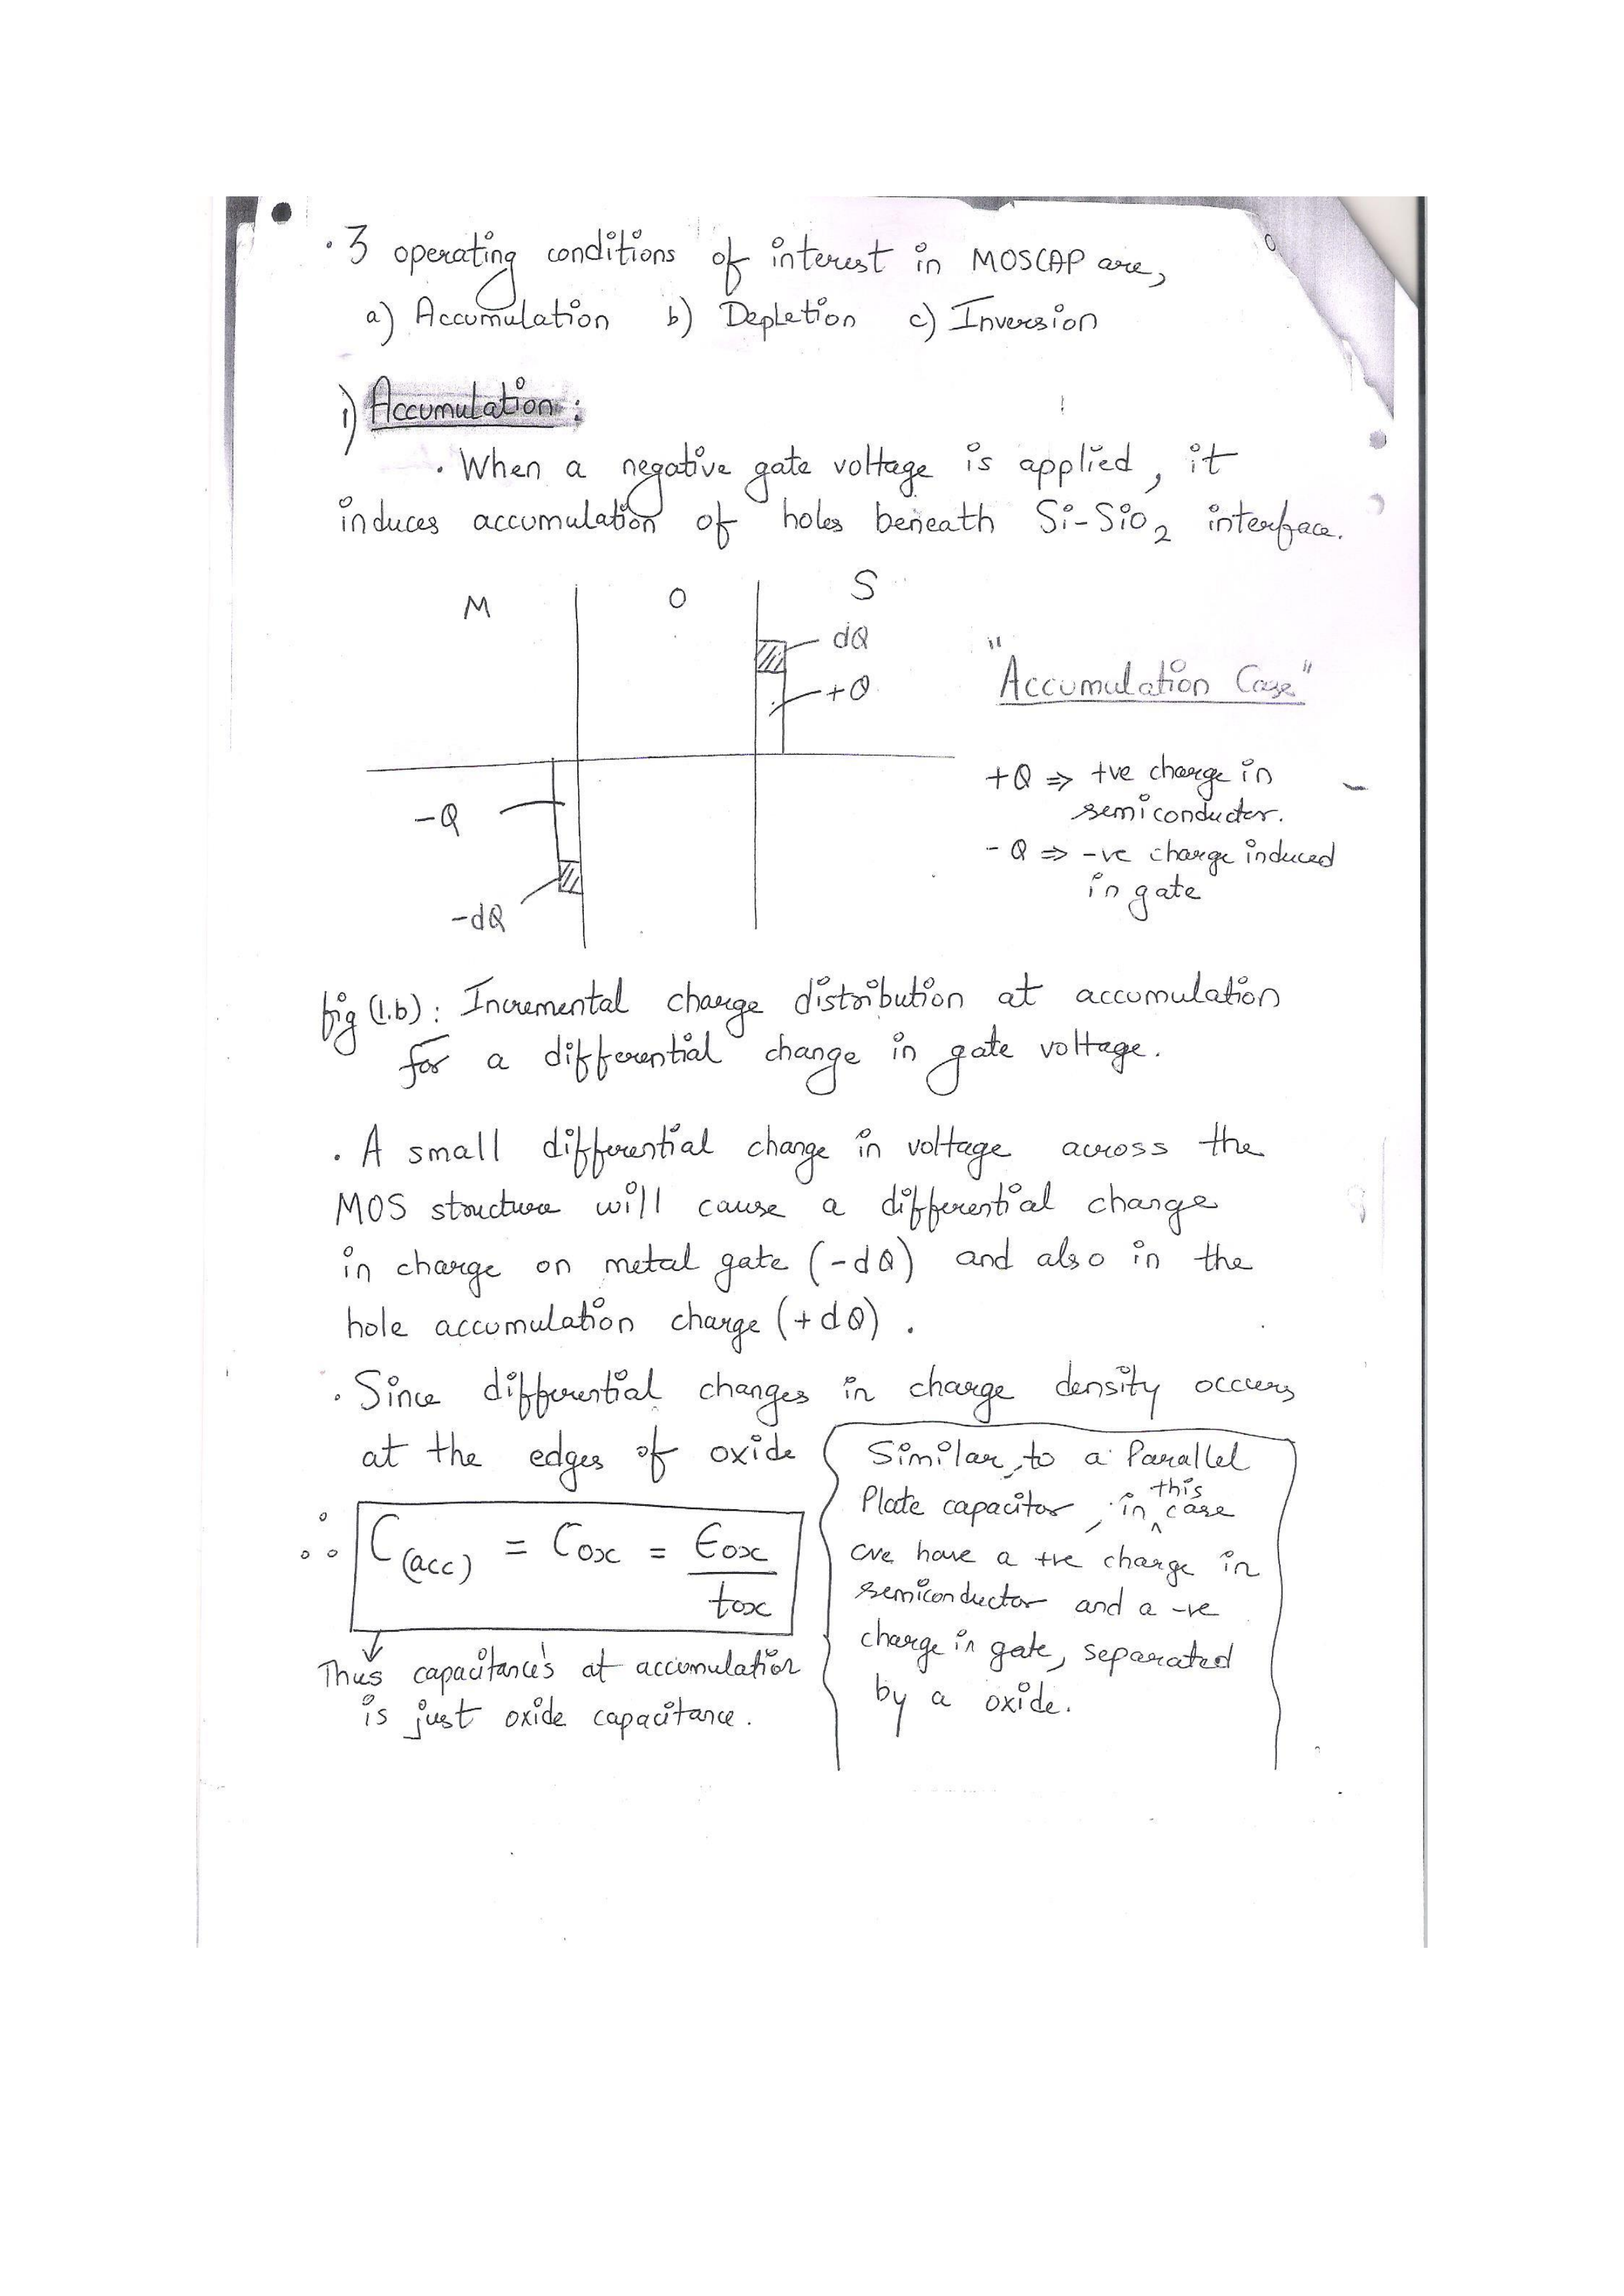 · 3 operating conditions of interest in MOSCAP are,
a) Accumulation b) Depletion c) Inversion
i) Accumulation :
· When a negative gate voltage is applied, it
induces accumulation of holes beneath Si-SiO₂ interface.
M O S
dQ
+Q
"Accumulation Case"
+Q ⇒ +ve charge in
semiconductor.
-Q
- Q ⇒ -ve charge induced
in gate
-dQ
fig (1.b) : Incremental charge distribution at accumulation
for a differential change in gate voltage.
· A small differential change in voltage across the
MOS structure will cause a differential change
in charge on metal gate (-dQ) and also in the
hole accumulation charge (+dQ) .
· Since differential changes in charge density occurs
at the edges of oxide
∴ C(acc) = Cox = Єox / tox
Thus capacitance's at accumulation
is just oxide capacitance.
Similar, to a Parallel
Plate capacitor, in this case
we have a +ve charge in
semiconductor and a -ve
charge in gate, separated
by a oxide.